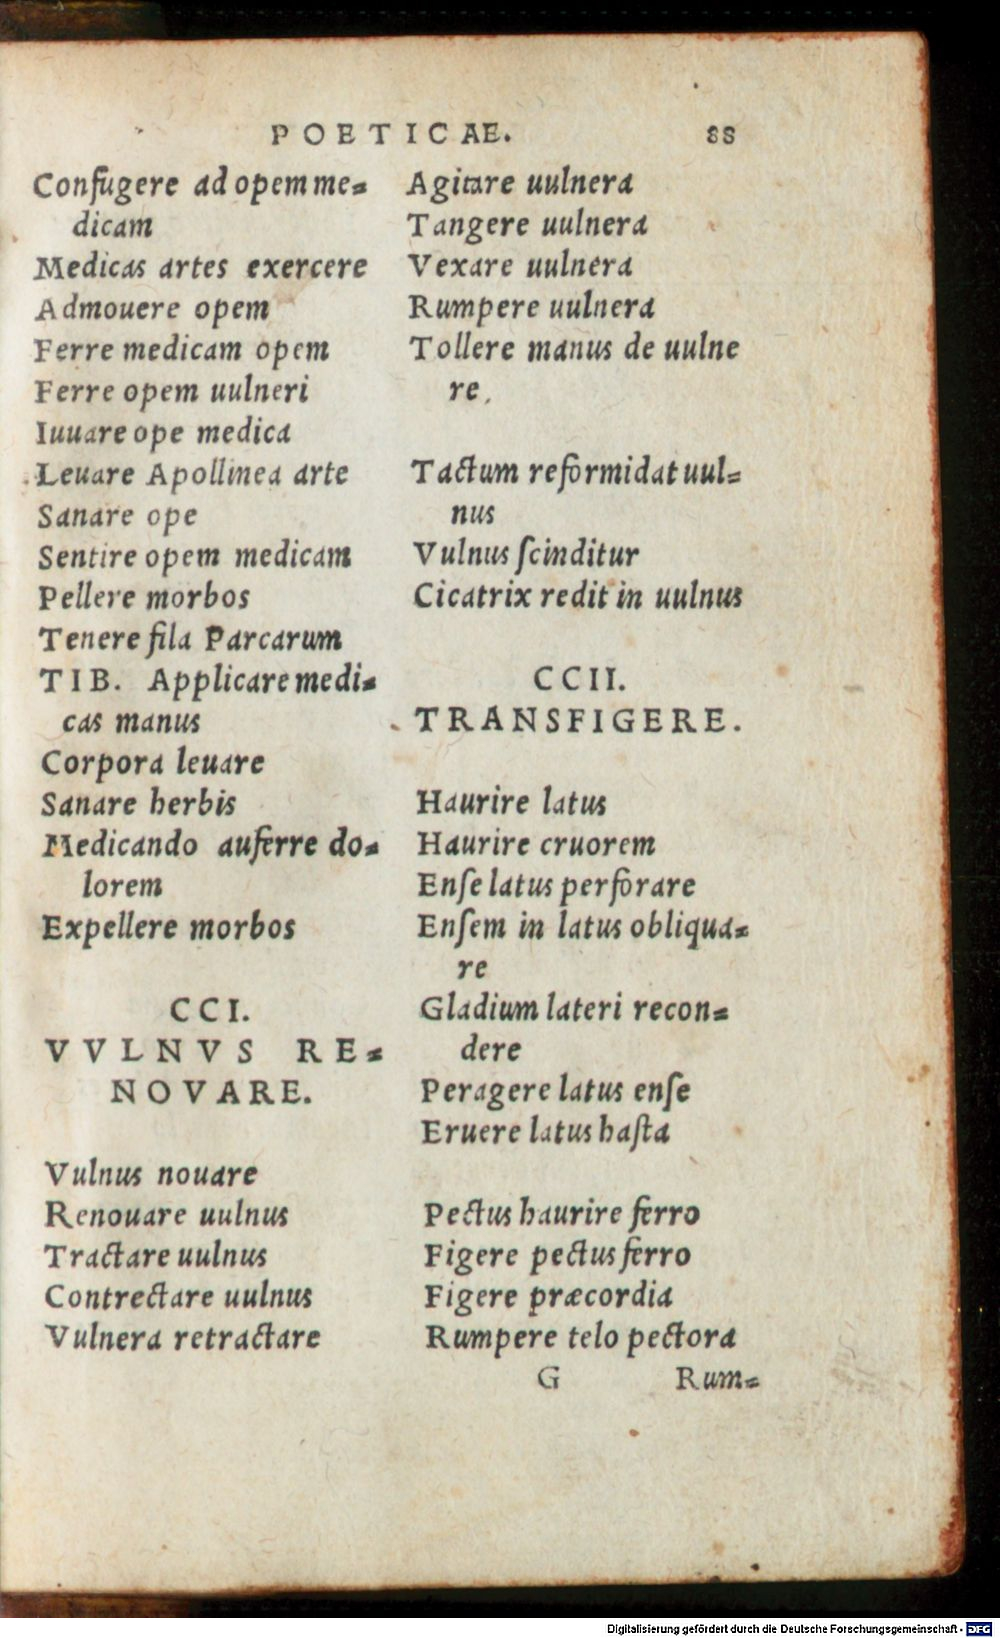 POETICAE. 88
Confugere ad opem me-
dicam
Medicas artes exercere
Admouere opem
Ferre medicam opem
Ferre opem uulneri
Iuuare ope medica
Leuare Apollinea arte
Sanare ope
Sentire opem medicam
Pellere morbos
Tenere fila Parcarum
TIB. Applicare medi-
cas manus
Corpora leuare
Sanare herbis
Medicando auferre do-
lorem
Expellere morbos
CCI.
VVLNVS RE-
NOVARE.
Vulnus nouare
Renouare uulnus
Tractare uulnus
Contrectare uulnus
Vulnera retractare
Agitare uulnera
Tangere uulnera
Vexare uulnera
Rumpere uulnera
Tollere manus de uulne
re.
Tactum reformidat uul-
nus
Vulnus ſcinditur
Cicatrix redit in uulnus
CCII.
TRANSFIGERE.
Haurire latus
Haurire cruorem
Enſe latus perforare
Enſem in latus obliqua-
re
Gladium lateri recon-
dere
Peragere latus enſe
Eruere latus haſta
Pectus haurire ferro
Figere pectus ferro
Figere præcordia
Rumpere telo pectora
G Rum-
Digitalisierung gefördert durch die Deutsche Forschungsgemeinschaft - DFG